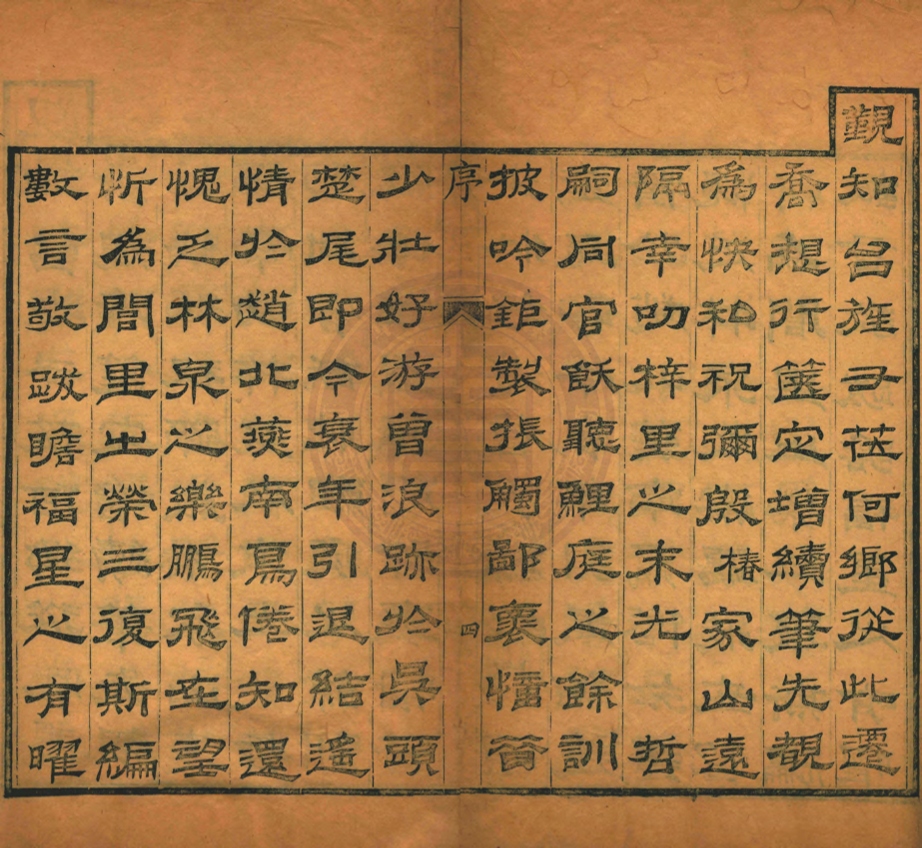 覲知台旌又莅何鄉從此遷
喬想行篋定增續筆先覩
為快私祝彌殷椿家山遠
隔幸叨梓里之末光哲
嗣同官飫聽鯉庭之餘訓
披吟鉅製振觸鄙裏懵昔
序
四
少壯好游曾浪跡於吳頭
楚尾即今衰年引退結遙
情於趙北燕南鳥倦知還
愧乏林泉之樂鵬飛在望
忻為閭里之榮三復斯編
數言敬跋瞻福星之有曜